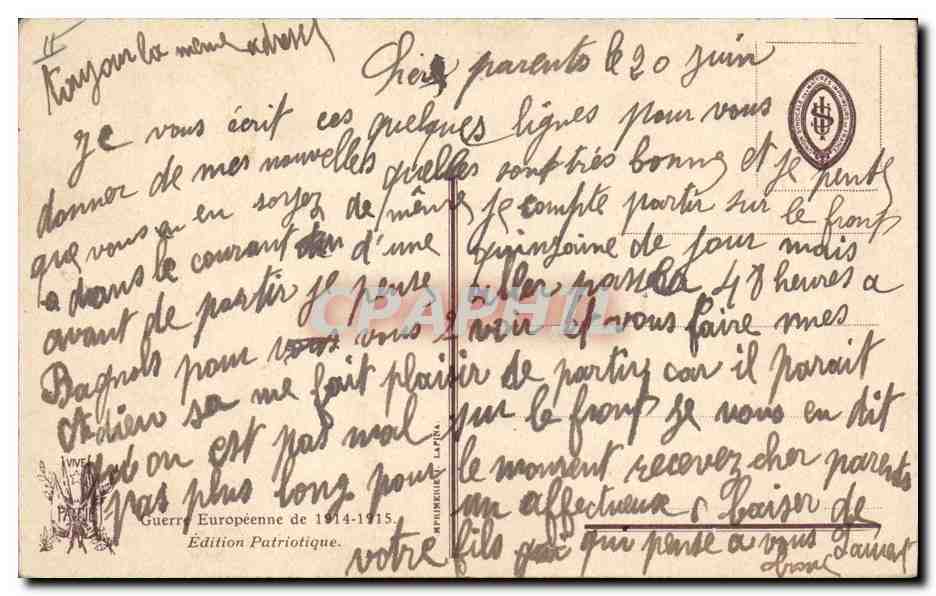 Toujour la meme adresse
Chers parents le 20 Juin
Je vous écrit ces quelques lignes pour vous
donner de mes nouvelles quelles sont très bonne et je pense
que vous en soyez de même je compte partir sur le front
a dans le courant d'une quinzaine de jour mais
avant de partir je pense aller passer 48 heures a
Bagnols pour vous voir et vous faire mes
Adieu sa me fait plaisir de partir car il parait
qu'on est pas mal sur le front je vous en dit
pas plus long pour le moment recevez cher parents
un affectueux baiser de
votre fils qui pense a vous
VIVE LA PATRIE
Guerre Européenne de 1914-1915.
Édition Patriotique.
IMPRIMERIE LAPINA
CPARPHIL